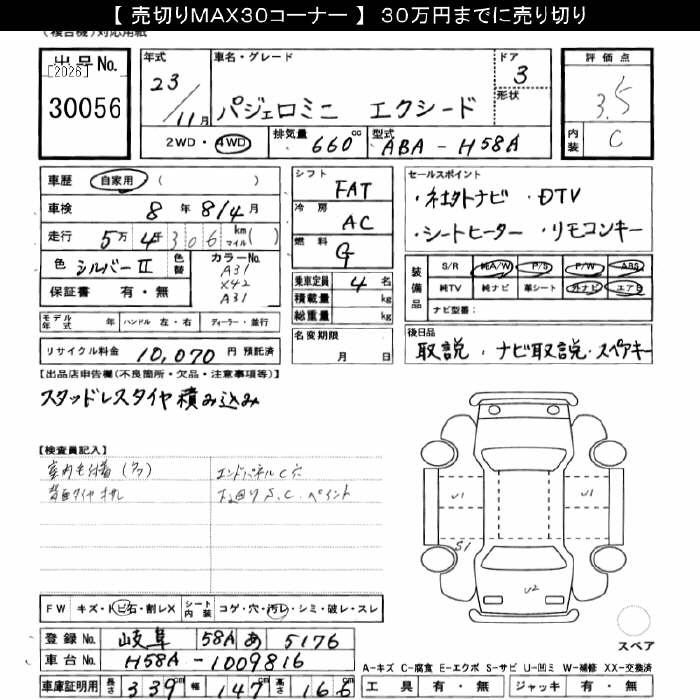 【 売切りMAX30コーナー 】 30万円までに売り切り
(複合機)対応用紙
出品No. [2026] 30056
年式 23/11月
車名・グレード パジェロミニ エクシード
ドア 3
形状
評価点 3.5
内装 C
2WD・4WD 排気量 660cc 型式 ABA-H58A
車歴 自家用 ( )
車検 8年 8/4月
走行 5万4千306 km マイル( )
色 シルバーII 色替 カラーNo. A31 X42 A31
保証書 有・無
モデル年式 年 ハンドル 左・右 ディーラー・並行
リサイクル料金 10,070 円 預託済
シフト FAT
冷房 AC
燃料 G
乗車定員 4 名
積載量 kg
総重量 kg
名変期限 月 日
セールスポイント
・社外ナビ ・DTV
・シートヒーター ・リモコンキー
装備品 S/R 純A/W P/S P/W ABS
純TV 純ナビ 革シート 外ナビ エアB
ナビ型番:
後日品
取説・ナビ取説・スペアキー
【出品店申告欄(不良箇所・欠品・注意事項等)】
スタッドレスタイヤ積み込み
【検査員記入】
室内毛付着
エンドパネルC穴
背面タイヤ
下廻りS.C.ペイント
U1 U1
S1
U2
FW キズ・トビ石・割レX シート内装 コゲ・穴・汚レ・シミ・破レ・スレ
登録No. 岐阜 58A あ 5176
車台No. H58A-1009816
車庫証明用 長さ 339cm 幅 147cm 高さ 166cm
スペア
A-キズ C-腐食 E-エクボ S-サビ U-凹ミ W-補修 XX-交換済
工具 有・無 ジャッキ 有・無